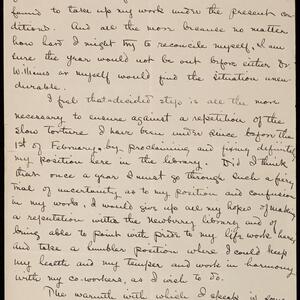 found to take up my work under the present con
ditions. And all the more because no matter
how hard I might try to reconcile myself, I am
sure the year would not be out before either Dr
Williams or myself would find the situation unen-
durable.
I feel that decided step is all the more
necessary to ensure against a repetition of the
slow torture I have been under since before the
1st of February, by proclaiming and fixing definitely
my position here in the library. Did I think
that once a year I must go through such a fiery
trial of uncertainty as to my position and confusion
in my works, I would give up all my hopes of making
a reputation with the Newberry Library and of
being able to point with pride to my life work here,
and take a humbler position where I could keep
my health and my temper and work in harmony
with my co-workers, as I wish to do.
The warmth with which I speak is